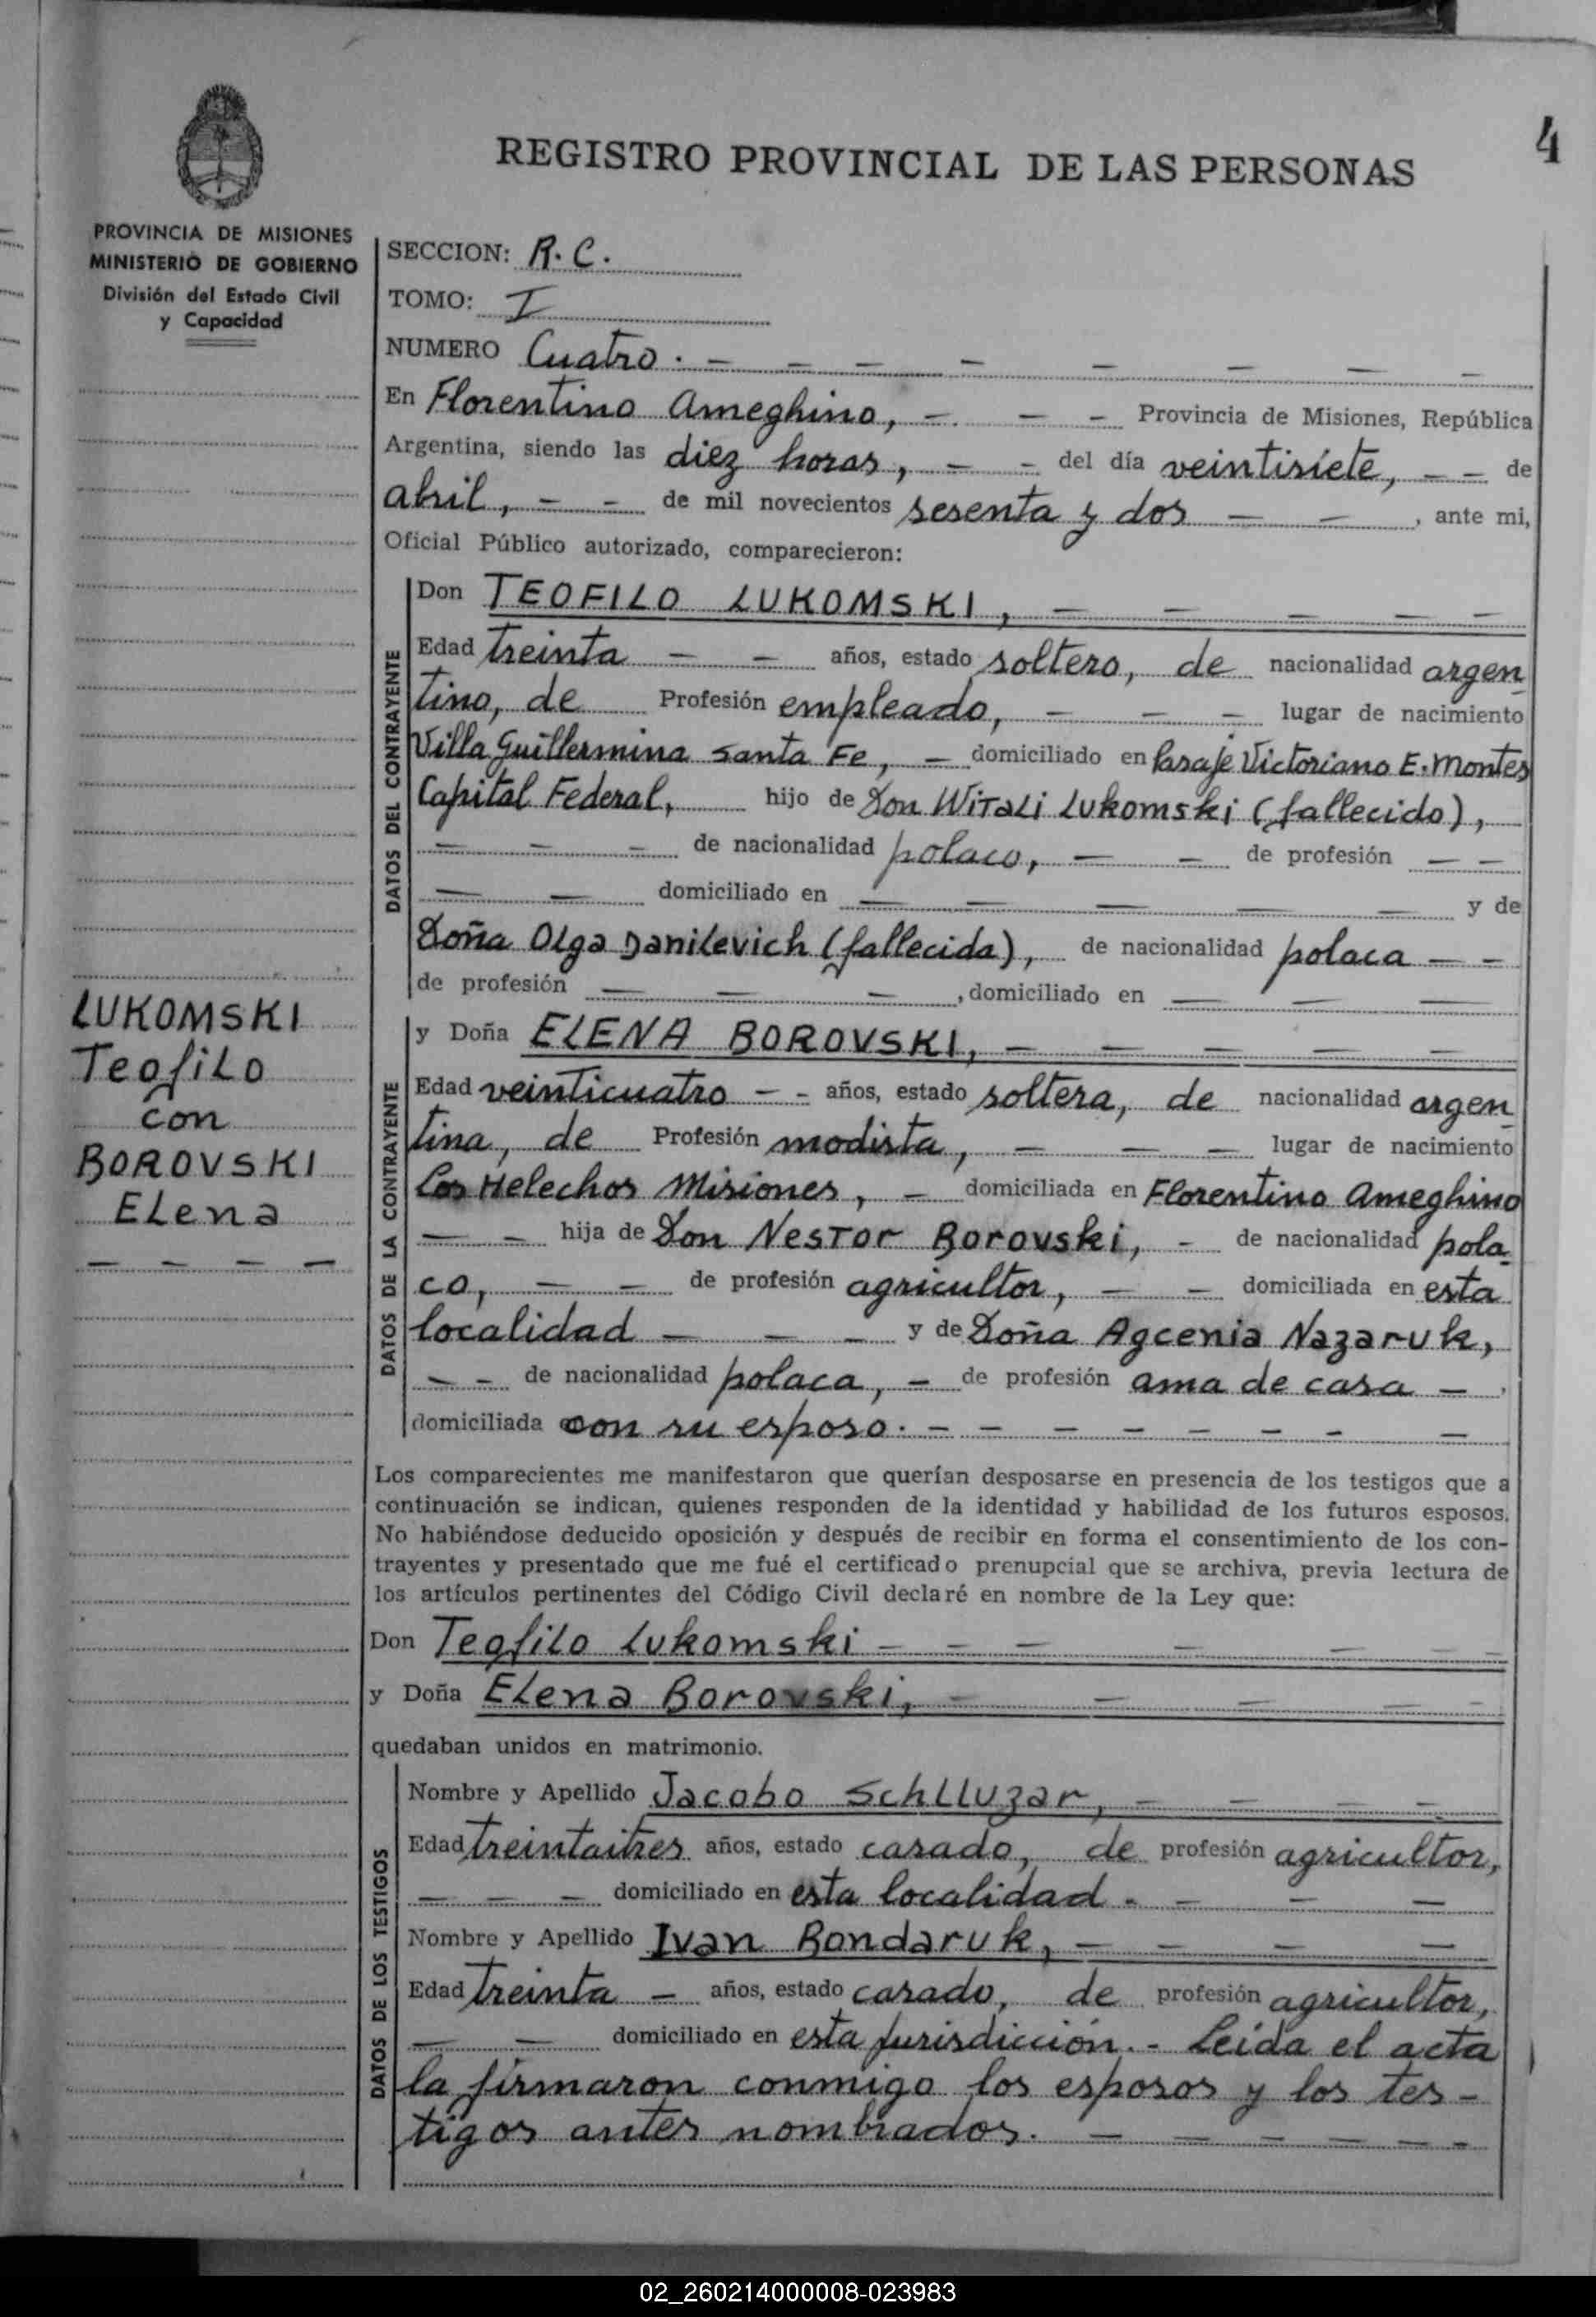 4
REGISTRO PROVINCIAL DE LAS PERSONAS
PROVINCIA DE MISIONES
MINISTERIO DE GOBIERNO
División del Estado Civil
y Capacidad
SECCION: R. C.
TOMO: I
NUMERO Cuatro. — — — — — — —
En Florentino Ameghino, — — — Provincia de Misiones, República
Argentina, siendo las diez horas, — — del día veintisiete, — — de
abril, — — de mil novecientos sesenta y dos — — , ante mi,
Oficial Público autorizado, comparecieron:
DATOS DEL CONTRAYENTE
Don TEOFILO LUKOMSKI, — — — — —
Edad treinta — — años, estado soltero, de nacionalidad argen
tino, de Profesión empleado, — — — lugar de nacimiento
Villa Guillermina Santa Fe, — domiciliado en Pasaje Victoriano E. Montes
Capital Federal, hijo de Don Witali Lukomski (fallecido),
— — — de nacionalidad polaco, — — de profesión — —
— — domiciliado en — — — — — y de
Doña Olga Danilevich (fallecida), de nacionalidad polaca — —
de profesión — — — , domiciliado en — — —
LUKOMSKI
Teofilo
con
BOROVSKI
Elena
— — — —
DATOS DE LA CONTRAYENTE
y Doña ELENA BOROVSKI, — — — — —
Edad veinticuatro — — años, estado soltera, de nacionalidad argen
tina, de Profesión modista, — — — lugar de nacimiento
Los Helechos Misiones, — domiciliada en Florentino Ameghino
— — hija de Don Nestor Borovski, — de nacionalidad pola
co, — — de profesión agricultor, — — domiciliada en esta
localidad — — — y de Doña Agcenia Nazaruk,
— — de nacionalidad polaca, — de profesión ama de casa — .
domiciliada con su esposo. — — — — — — — —
Los comparecientes me manifestaron que querían desposarse en presencia de los testigos que a
continuación se indican, quienes responden de la identidad y habilidad de los futuros esposos.
No habiéndose deducido oposición y después de recibir en forma el consentimiento de los con-
trayentes y presentado que me fué el certificado prenupcial que se archiva, previa lectura de
los artículos pertinentes del Código Civil declaré en nombre de la Ley que:
Don Teofilo Lukomski — — — — — — —
y Doña Elena Borovski, — — — — —
quedaban unidos en matrimonio.
DATOS DE LOS TESTIGOS
Nombre y Apellido Jacobo Schlluzar, — — — —
Edad treintaitres años, estado casado, de profesión agricultor,
— — — domiciliado en esta localidad. — — —
Nombre y Apellido Ivan Bondaruk, — — — —
Edad treinta — años, estado casado, de profesión agricultor,
— — domiciliado en esta jurisdicción. - Leida el acta
la firmaron conmigo los esposos y los tes-
tigos antes nombrados. — — — — — —
02_260214000008-023983